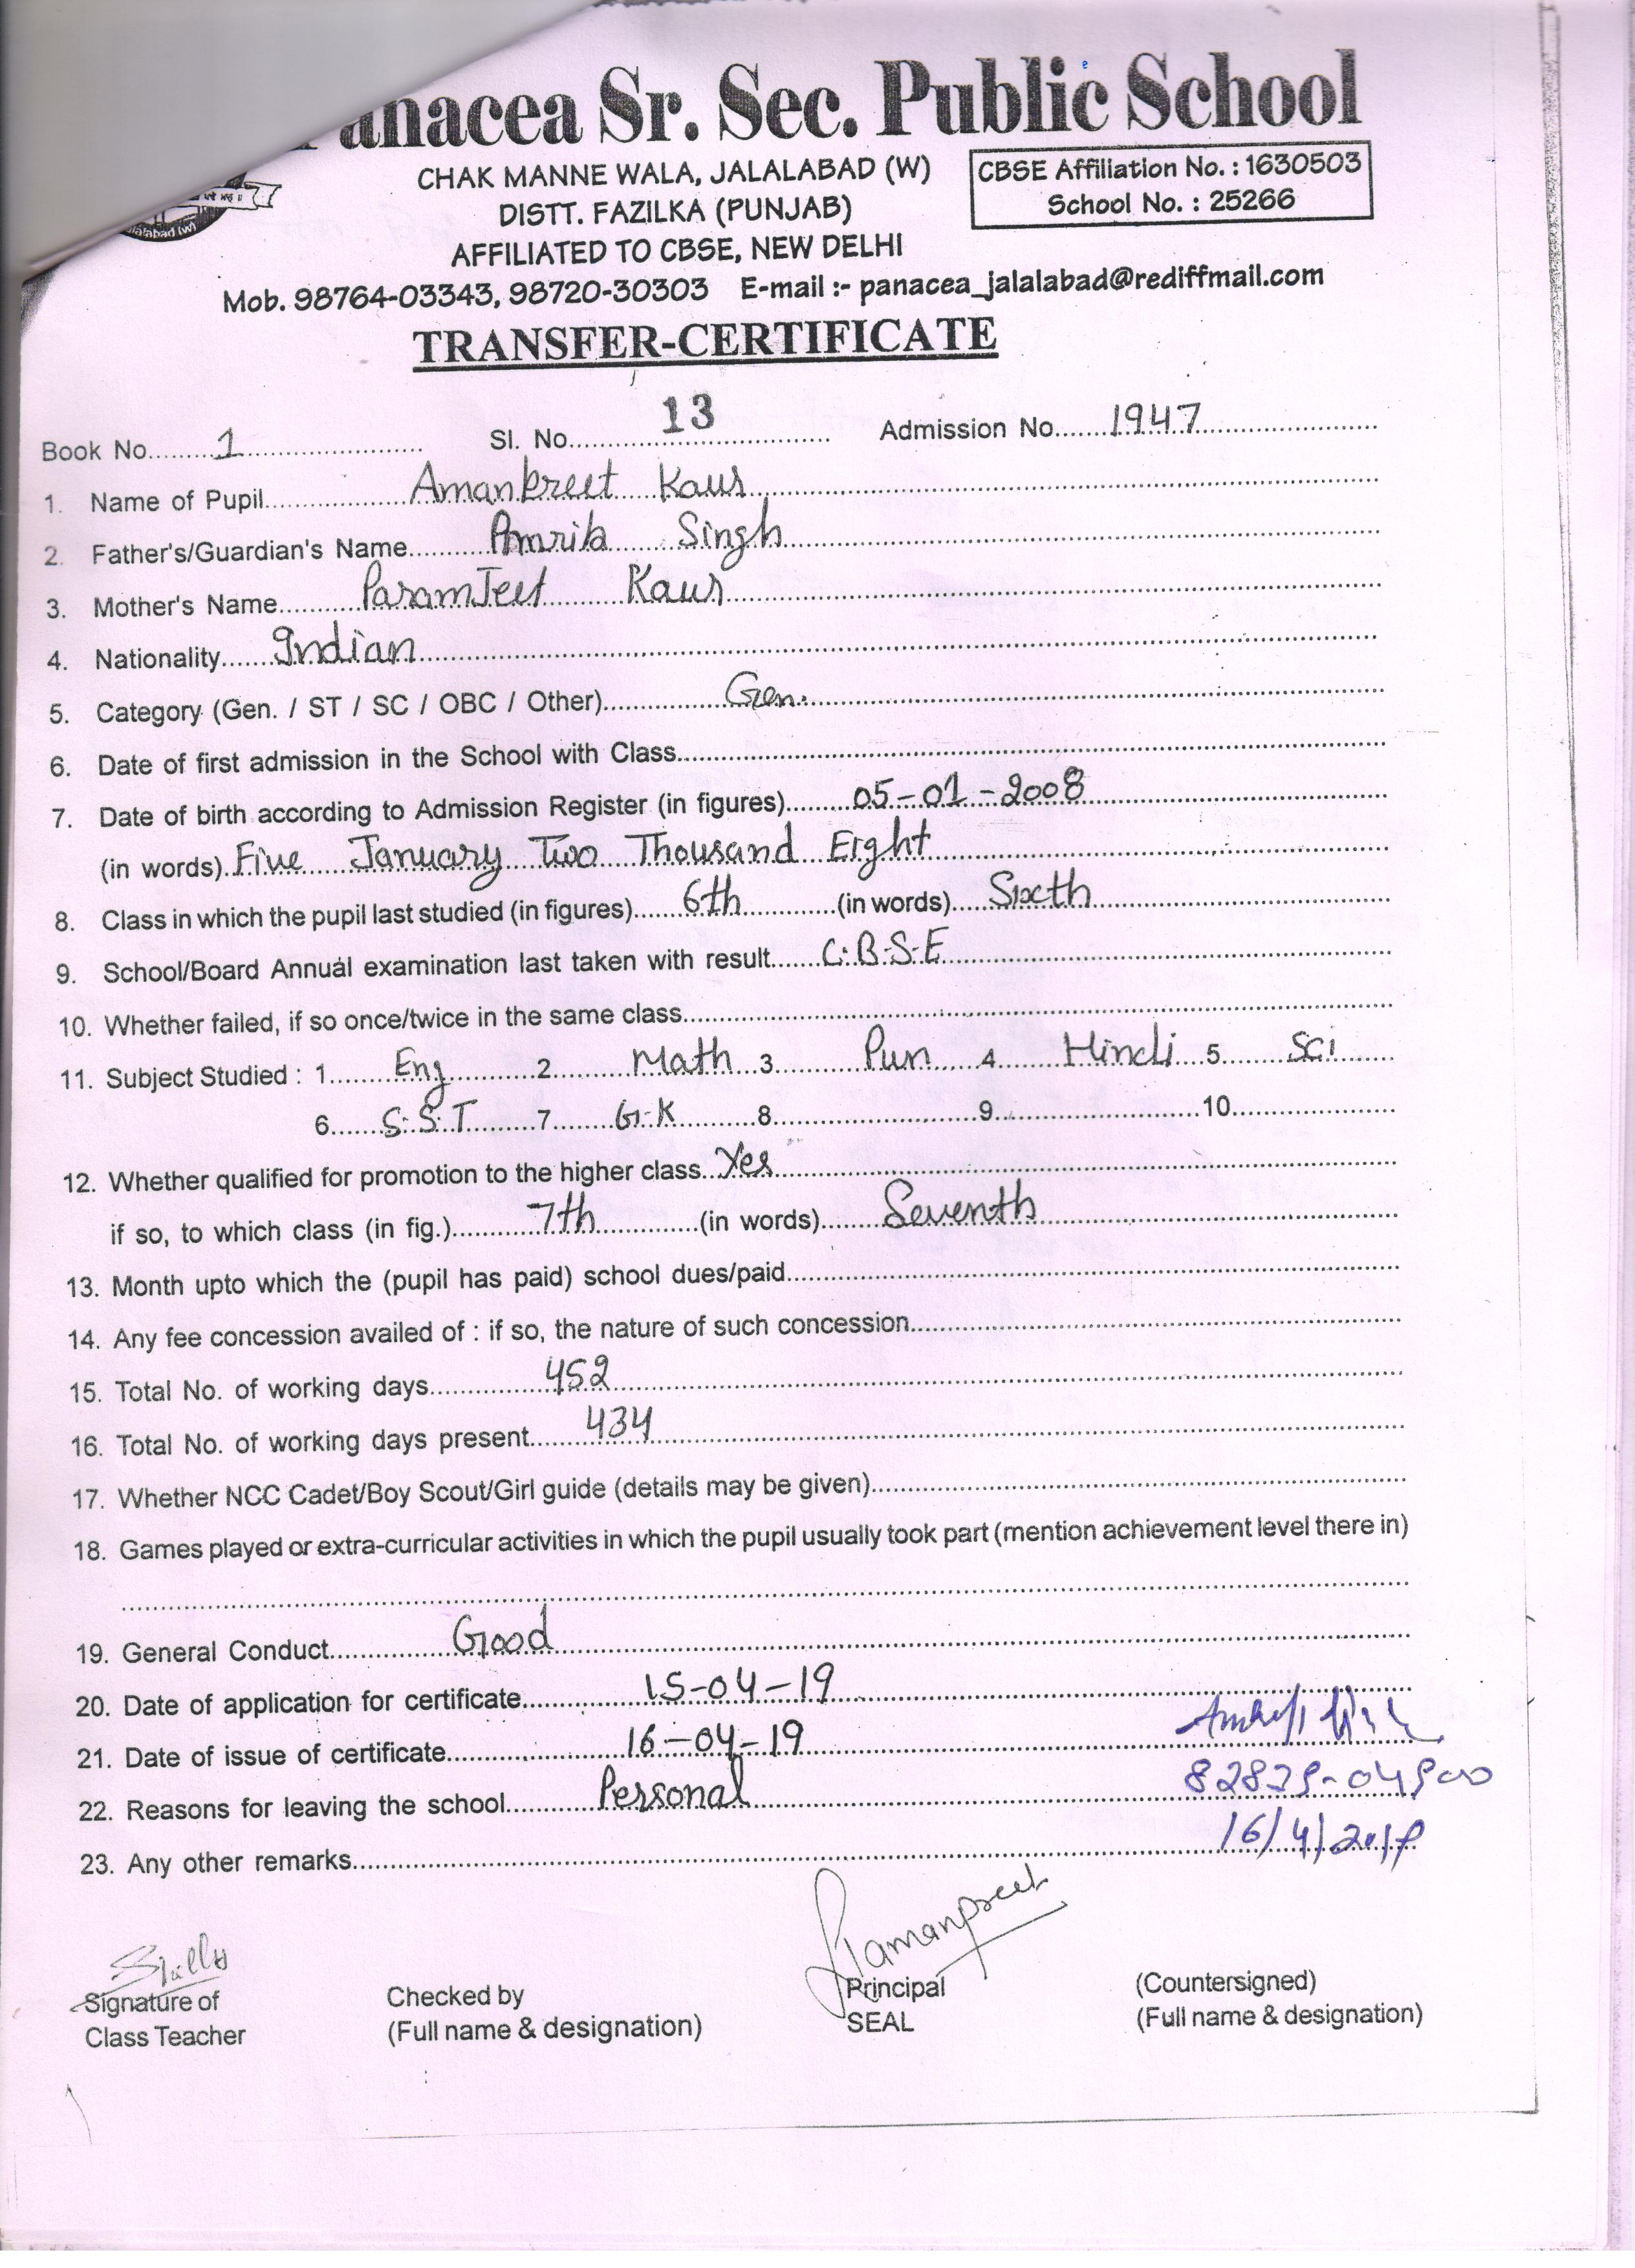 Panacea Sr. Sec. Public School
CHAK MANNE WALA, JALALABAD (W)
DISTT. FAZILKA (PUNJAB)
AFFILIATED TO CBSE, NEW DELHI
CBSE Affiliation No. : 1630503
School No. : 25266
Jalalabad (W)
Mob. 98764-03343, 98720-30303 E-mail :- panacea_jalalabad@rediffmail.com
TRANSFER-CERTIFICATE
Book No. 1 Sl. No. 13 Admission No. 1947
1. Name of Pupil Amankreet Kaur
2. Father's/Guardian's Name Amrik Singh
3. Mother's Name ParamJeet Kaur
4. Nationality Indian
5. Category (Gen. / ST / SC / OBC / Other) Gen.
6. Date of first admission in the School with Class
7. Date of birth according to Admission Register (in figures) 05-01-2008
(in words) Five January Two Thousand Eight
8. Class in which the pupil last studied (in figures) 6th (in words) Sixth
9. School/Board Annual examination last taken with result C.B.S.E
10. Whether failed, if so once/twice in the same class
11. Subject Studied : 1 Eng 2 Math 3 Pun 4 Hindi 5 Sci
6 S.S.T 7 G.K 8 9 10
12. Whether qualified for promotion to the higher class Yes
if so, to which class (in fig.) 7th (in words) Seventh
13. Month upto which the (pupil has paid) school dues/paid
14. Any fee concession availed of : if so, the nature of such concession
15. Total No. of working days 452
16. Total No. of working days present 434
17. Whether NCC Cadet/Boy Scout/Girl guide (details may be given)
18. Games played or extra-curricular activities in which the pupil usually took part (mention achievement level there in)
19. General Conduct Good
20. Date of application for certificate 15-04-19
21. Date of issue of certificate 16-04-19
22. Reasons for leaving the school Personal
16/4/2019
23. Any other remarks
Signature of
Class Teacher
Checked by
(Full name & designation)
Principal
SEAL
(Countersigned)
(Full name & designation)